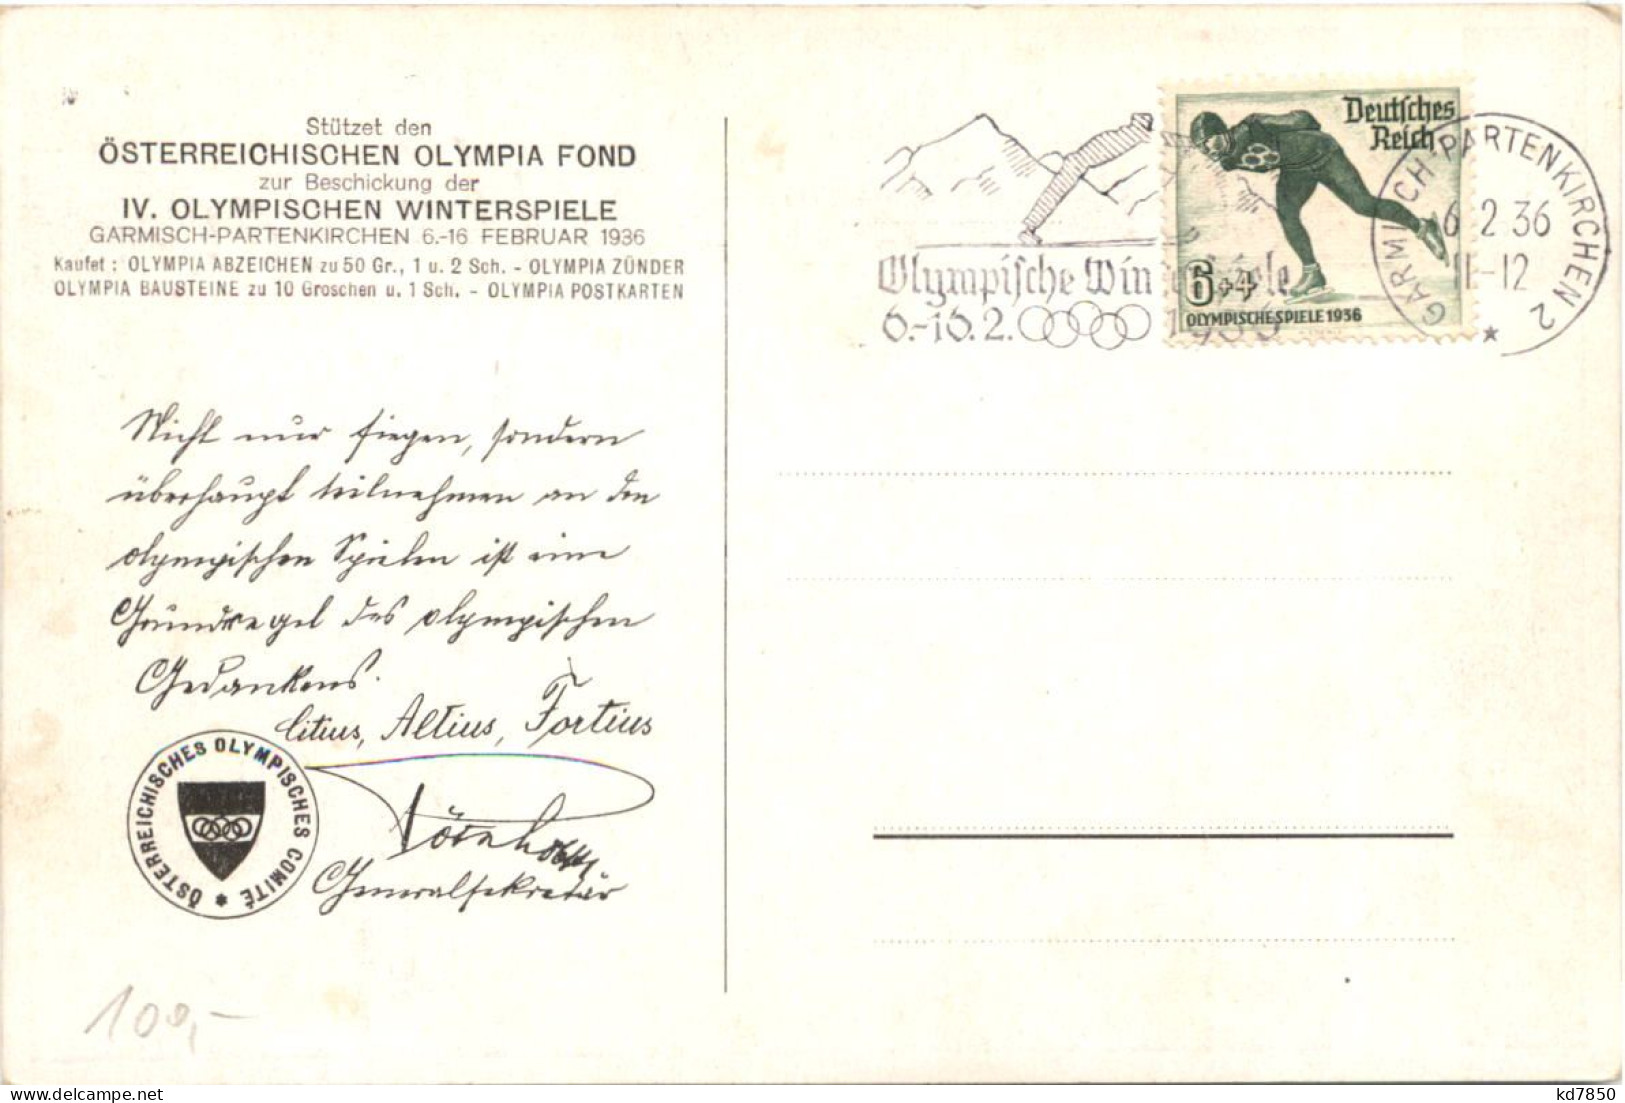 Stützet den
ÖSTERREICHISCHEN OLYMPIA FOND
zur Beschickung der
IV. OLYMPISCHEN WINTERSPIELE
GARMISCH-PARTENKIRCHEN 6.-16 FEBRUAR 1936
Kaufet: OLYMPIA ABZEICHEN zu 50 Gr., 1 u. 2 Sch. - OLYMPIA ZÜNDER
OLYMPIA BAUSTEINE zu 10 Groschen u. 1 Sch. - OLYMPIA POSTKARTEN
Nicht nur siegen, sondern
überhaupt teilnehmen an den
olympischen Spielen ist eine
Grundregel des olympischen
Gedankens.
Citius, Altius, Fortius
Generalsekretär
ÖSTERREICHISCHES OLYMPISCHES COMITÉ *
100,-
Deutsches
Reich
6+4
OLYMPISCHE SPIELE 1936
Olympische Winterspiele
6.-16.2. 1936
GARMISCH-PARTENKIRCHEN 2
6.2.36
11-12
*
delcampe.net
kd7850